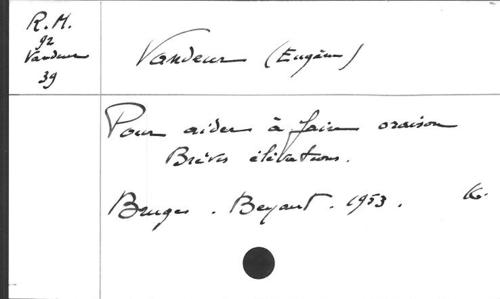 R.M.
92
Vandeur
39
Vandeur (Eugène)
Pour aider à faire oraison
Brèves élévations.
Bruges. Beyaert. 1953.